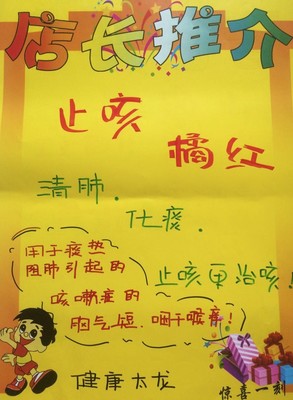 店长推介
止咳
橘红
清肺.
化痰.
用于痰热
阻肺引起的
咳嗽痰的
胸气短.咽干喉痛!
止咳更治咳!
健康大龙
惊喜一刻